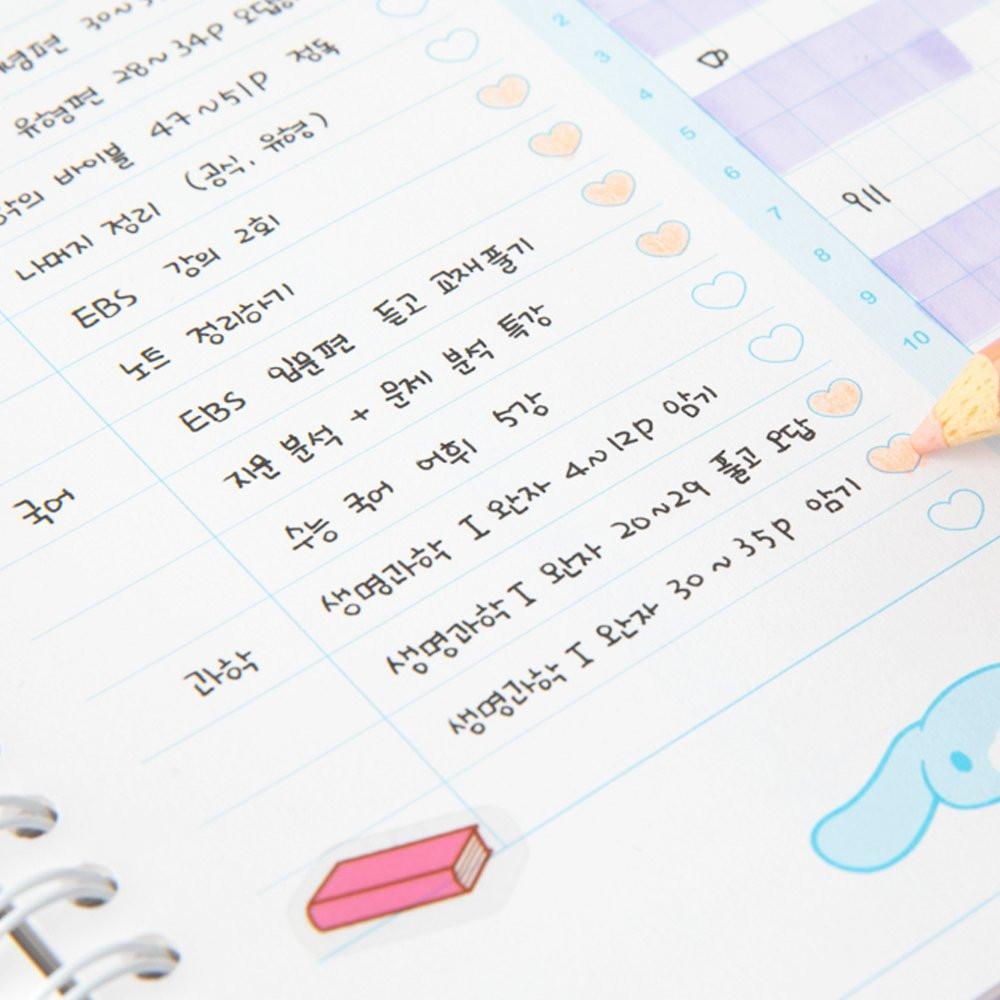 30~3
유형편 28~34p 오답
바이블 47~51p 정독
나머지 정리 (공식, 유형)
EBS 강의 2회
노트 정리하기
국어 EBS 입문편 듣고 교재풀기
지문 분석 + 문제 분석 특강
수능 국어 어휘 5강
과학 생명과학 I 완자 4~12p 암기
생명과학 I 완자 20~29 풀고 오답
생명과학 I 완자 30~35p 암기
2
3
4
5
6
7
8
9
10